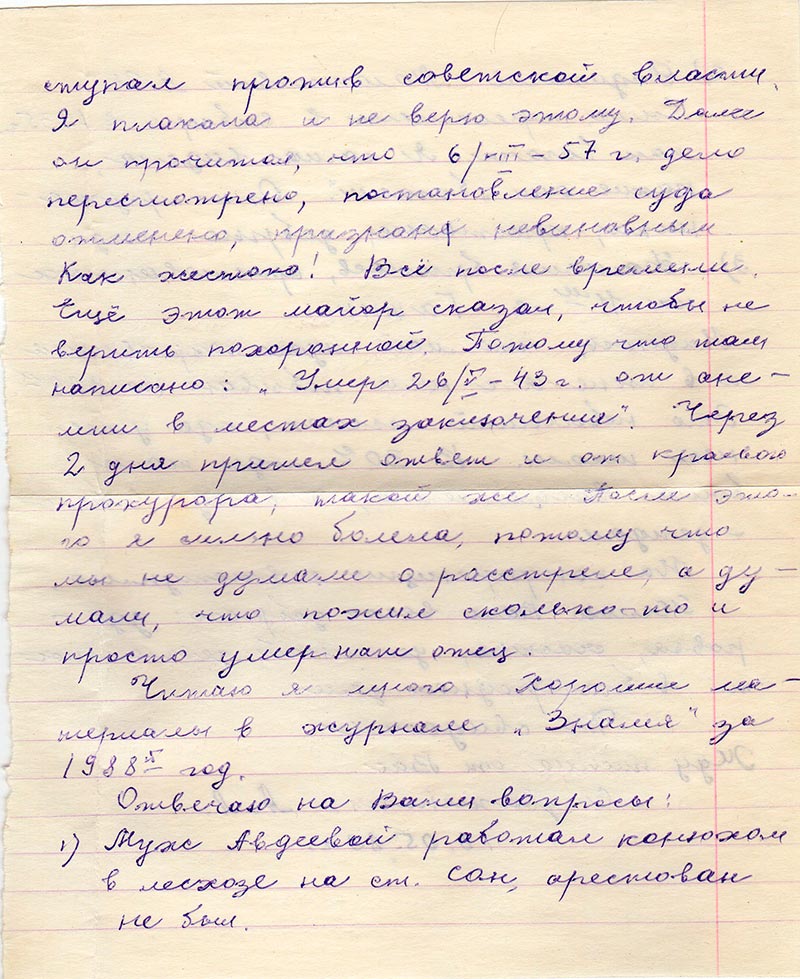 ступал против советской власти.
Я плакала и не верю этому. Далее
он прочитал, что 6/VIII – 57 г. дело
пересмотрено, постановление суда
отменено, признан невиновным.
Как жестоко! Всё после времени.
Ещё этот майор сказал, чтобы не
верить похоронной. Потому что там
написано: „Умер 26/V – 43 г. от ане-
мии в местах заключения". Через
2 дня пришел ответ и от краевого
прокурора, такой же. После это-
го я сильно болела, потому что
мы не думали о расстреле, а ду-
мали, что пожил сколько-то и
просто умер наш отец.
Читаю я много. Хорошие ма-
териалы в журнале „Знамя" за
1988 год.
Отвечаю на Ваши вопросы:
1) Муж Авдеевой работал конюхом
в лесхозе на ст. Сон, арестован
не был.